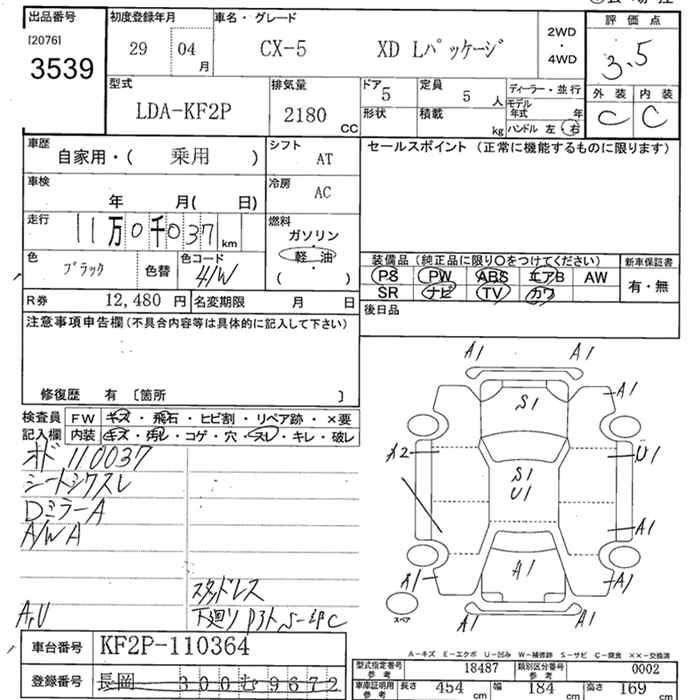 出品番号 初度登録年月 車名・グレード 評価点
[2076] 29 04 月 CX-5 XD Lパッケージ 2WD ・ 4WD 3.5
3539
型式 排気量 ドア 定員 ディーラー・並行 外装 内装
LDA-KF2P 2180 CC 5 5 人 モデル年式 年 C C
形状 積載 kg ハンドル 左・右
車歴 自家用・( 乗用 ) シフト AT セールスポイント (正常に機能するものに限ります)
車検 年 月( 日) 冷房 AC
走行 11万0千037 km 燃料 ガソリン ・ 軽油 ( )
色 ブラック 色替 色コード 41W
装備品 (純正品に限り○をつけてください) 新車保証書
PS PW ABS エアB AW 有・無
SR ナビ TV カワ
R券 12,480 円 名変期限 月 日
後日品
注意事項申告欄 (不具合内容等は具体的に記入して下さい)
修復歴 有 〔箇所 〕
検査員 FW キズ・飛石・ヒビ割・リペア跡・×要
記入欄 内装 キズ・汚レ・コゲ・穴・スレ・キレ・破レ
オド 110037
シートシワスレ
DミラーA
A/W A
スタッドレス
A,U
A1 A1
S1 A1
A2 S1 U1 U1
A1
A1 A1 A1
スペア
A1 A1
A-キズ E-エクボ U-凹み W-補修跡 S-サビ C-腐食 ××-交換済
車台番号 KF2P-110364
登録番号 長岡 300 む 9672
型式指定番号 参考 18487 類別区分番号 参考 0002
車庫証明用 参考 長さ 454 cm 幅 184 cm 高さ 169 cm